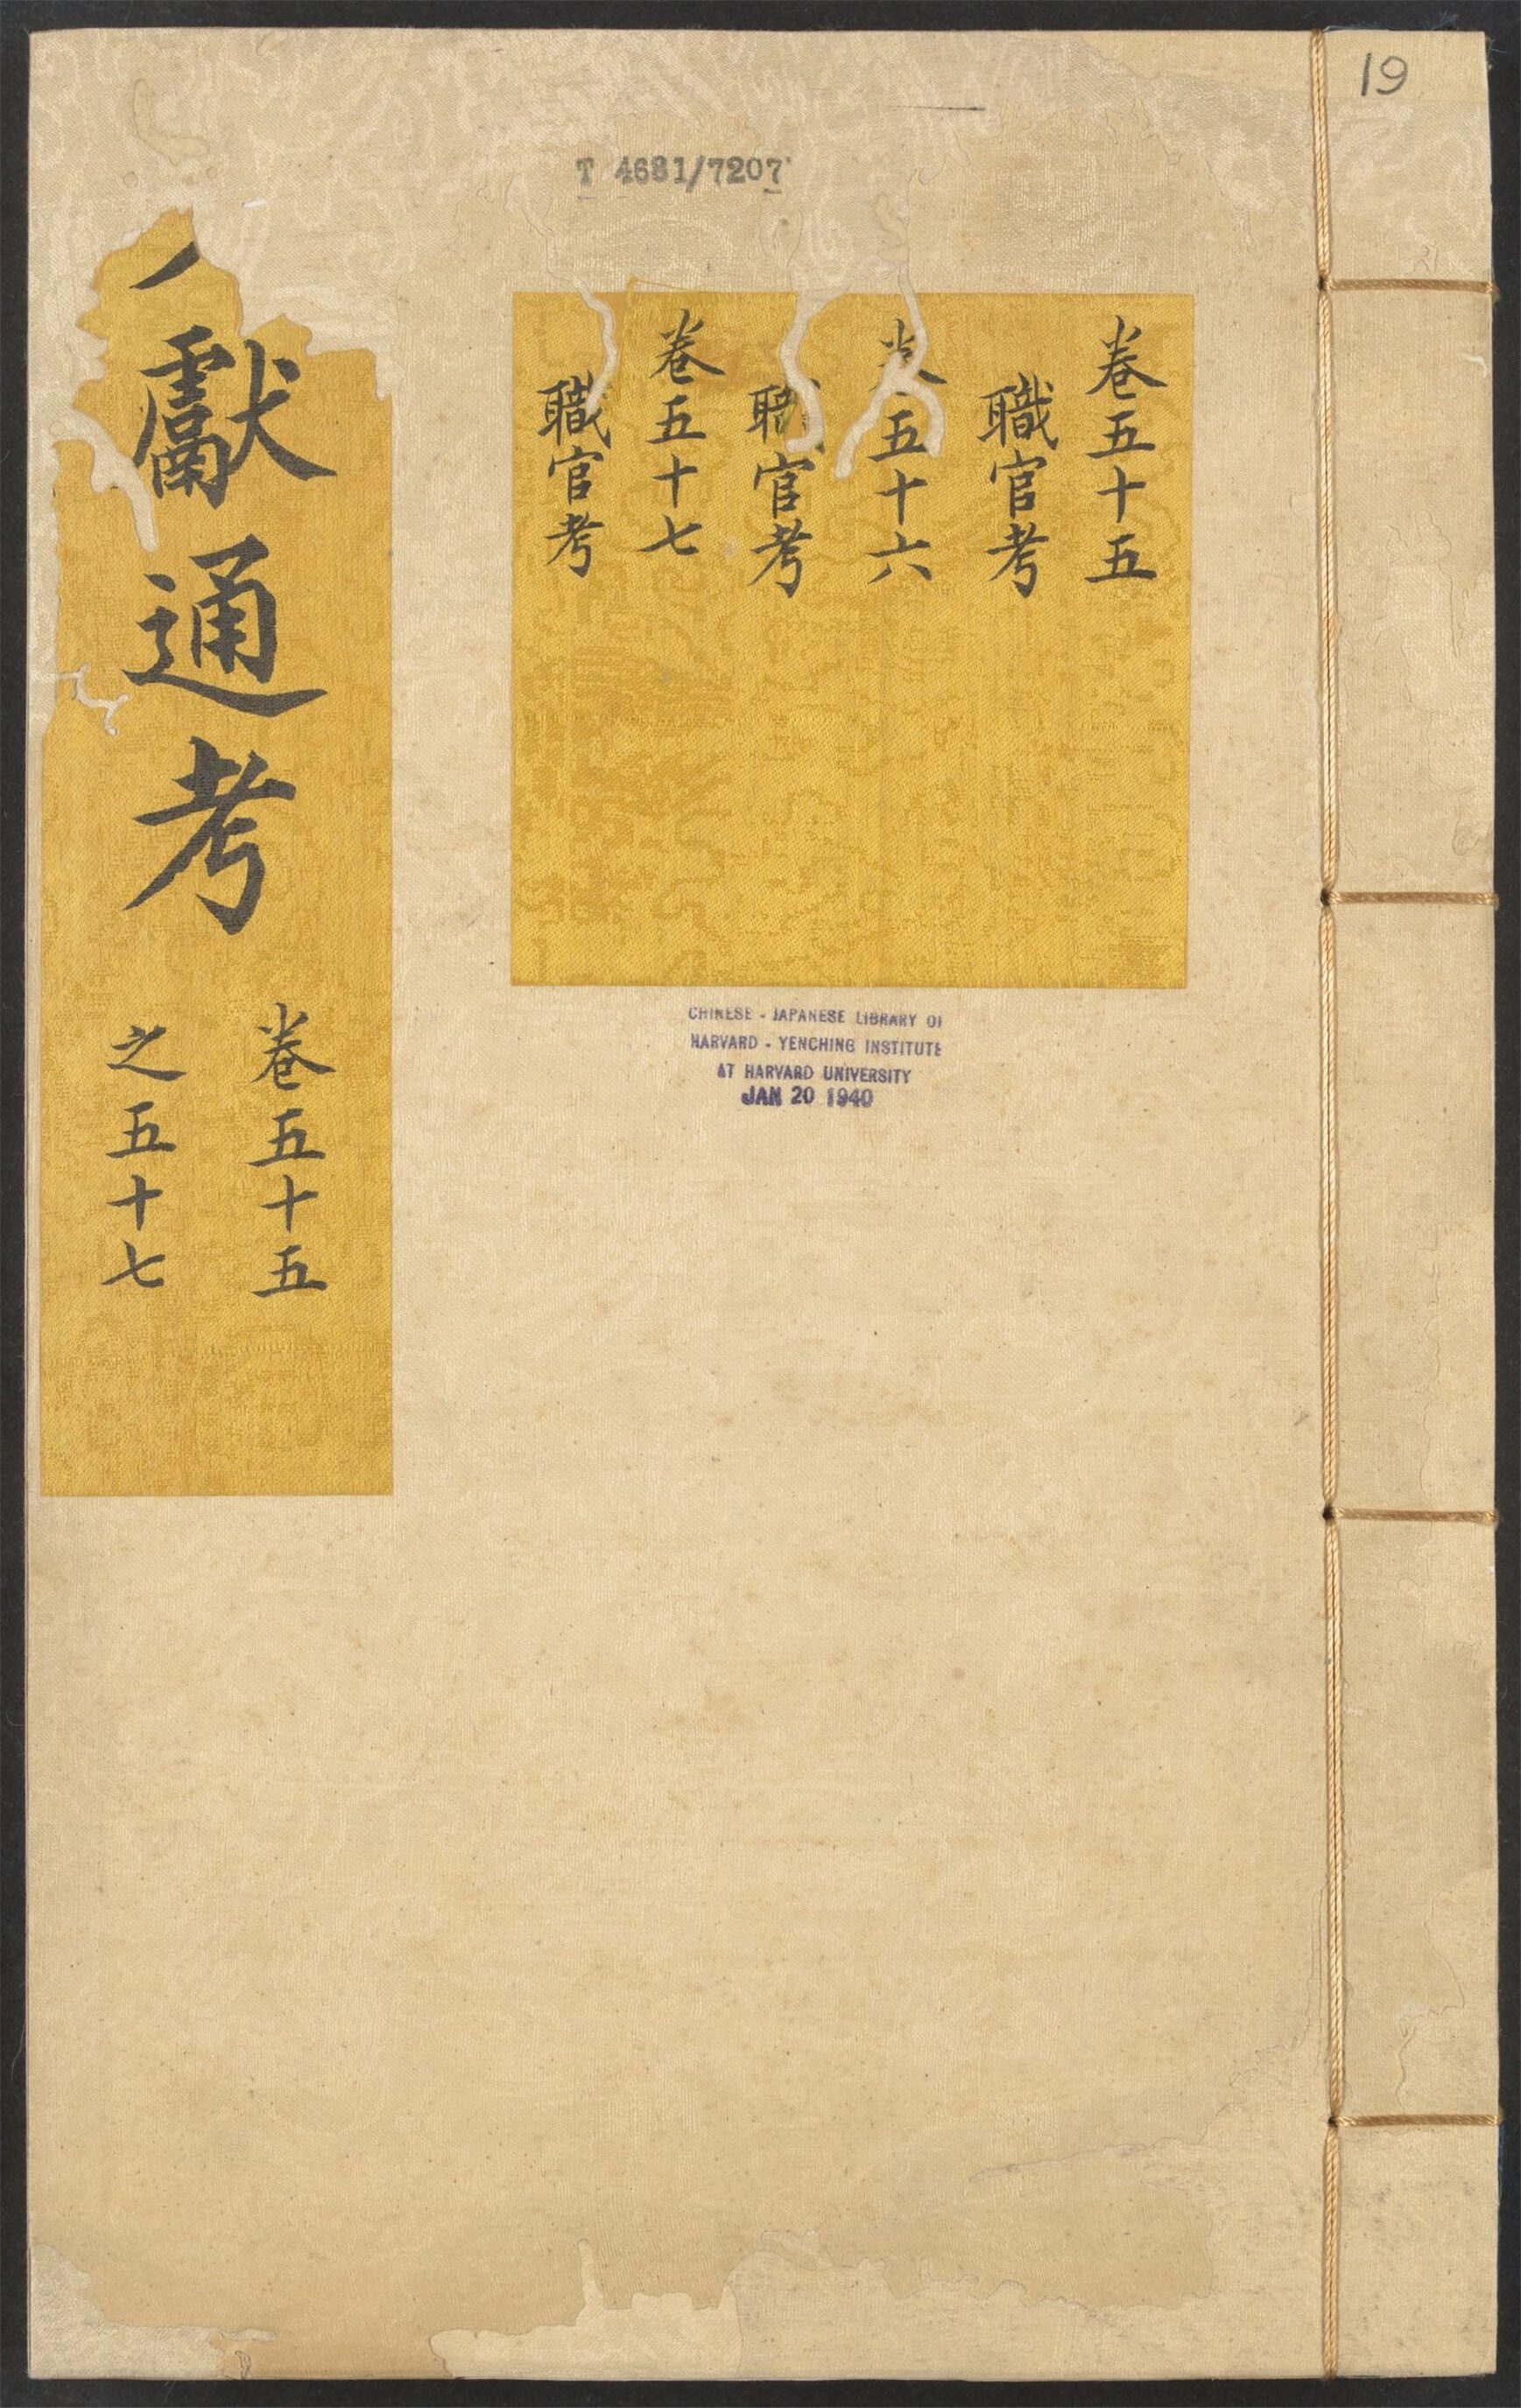 19
T 4681/7207
卷五十五
職官考
五十六
官考
卷五十七
職官考
獻通考
卷五十五
之五十七
CHINESE - JAPANESE LIBRARY OF
HARVARD - YENCHING INSTITUTE
AT HARVARD UNIVERSITY
JAN 20 1940